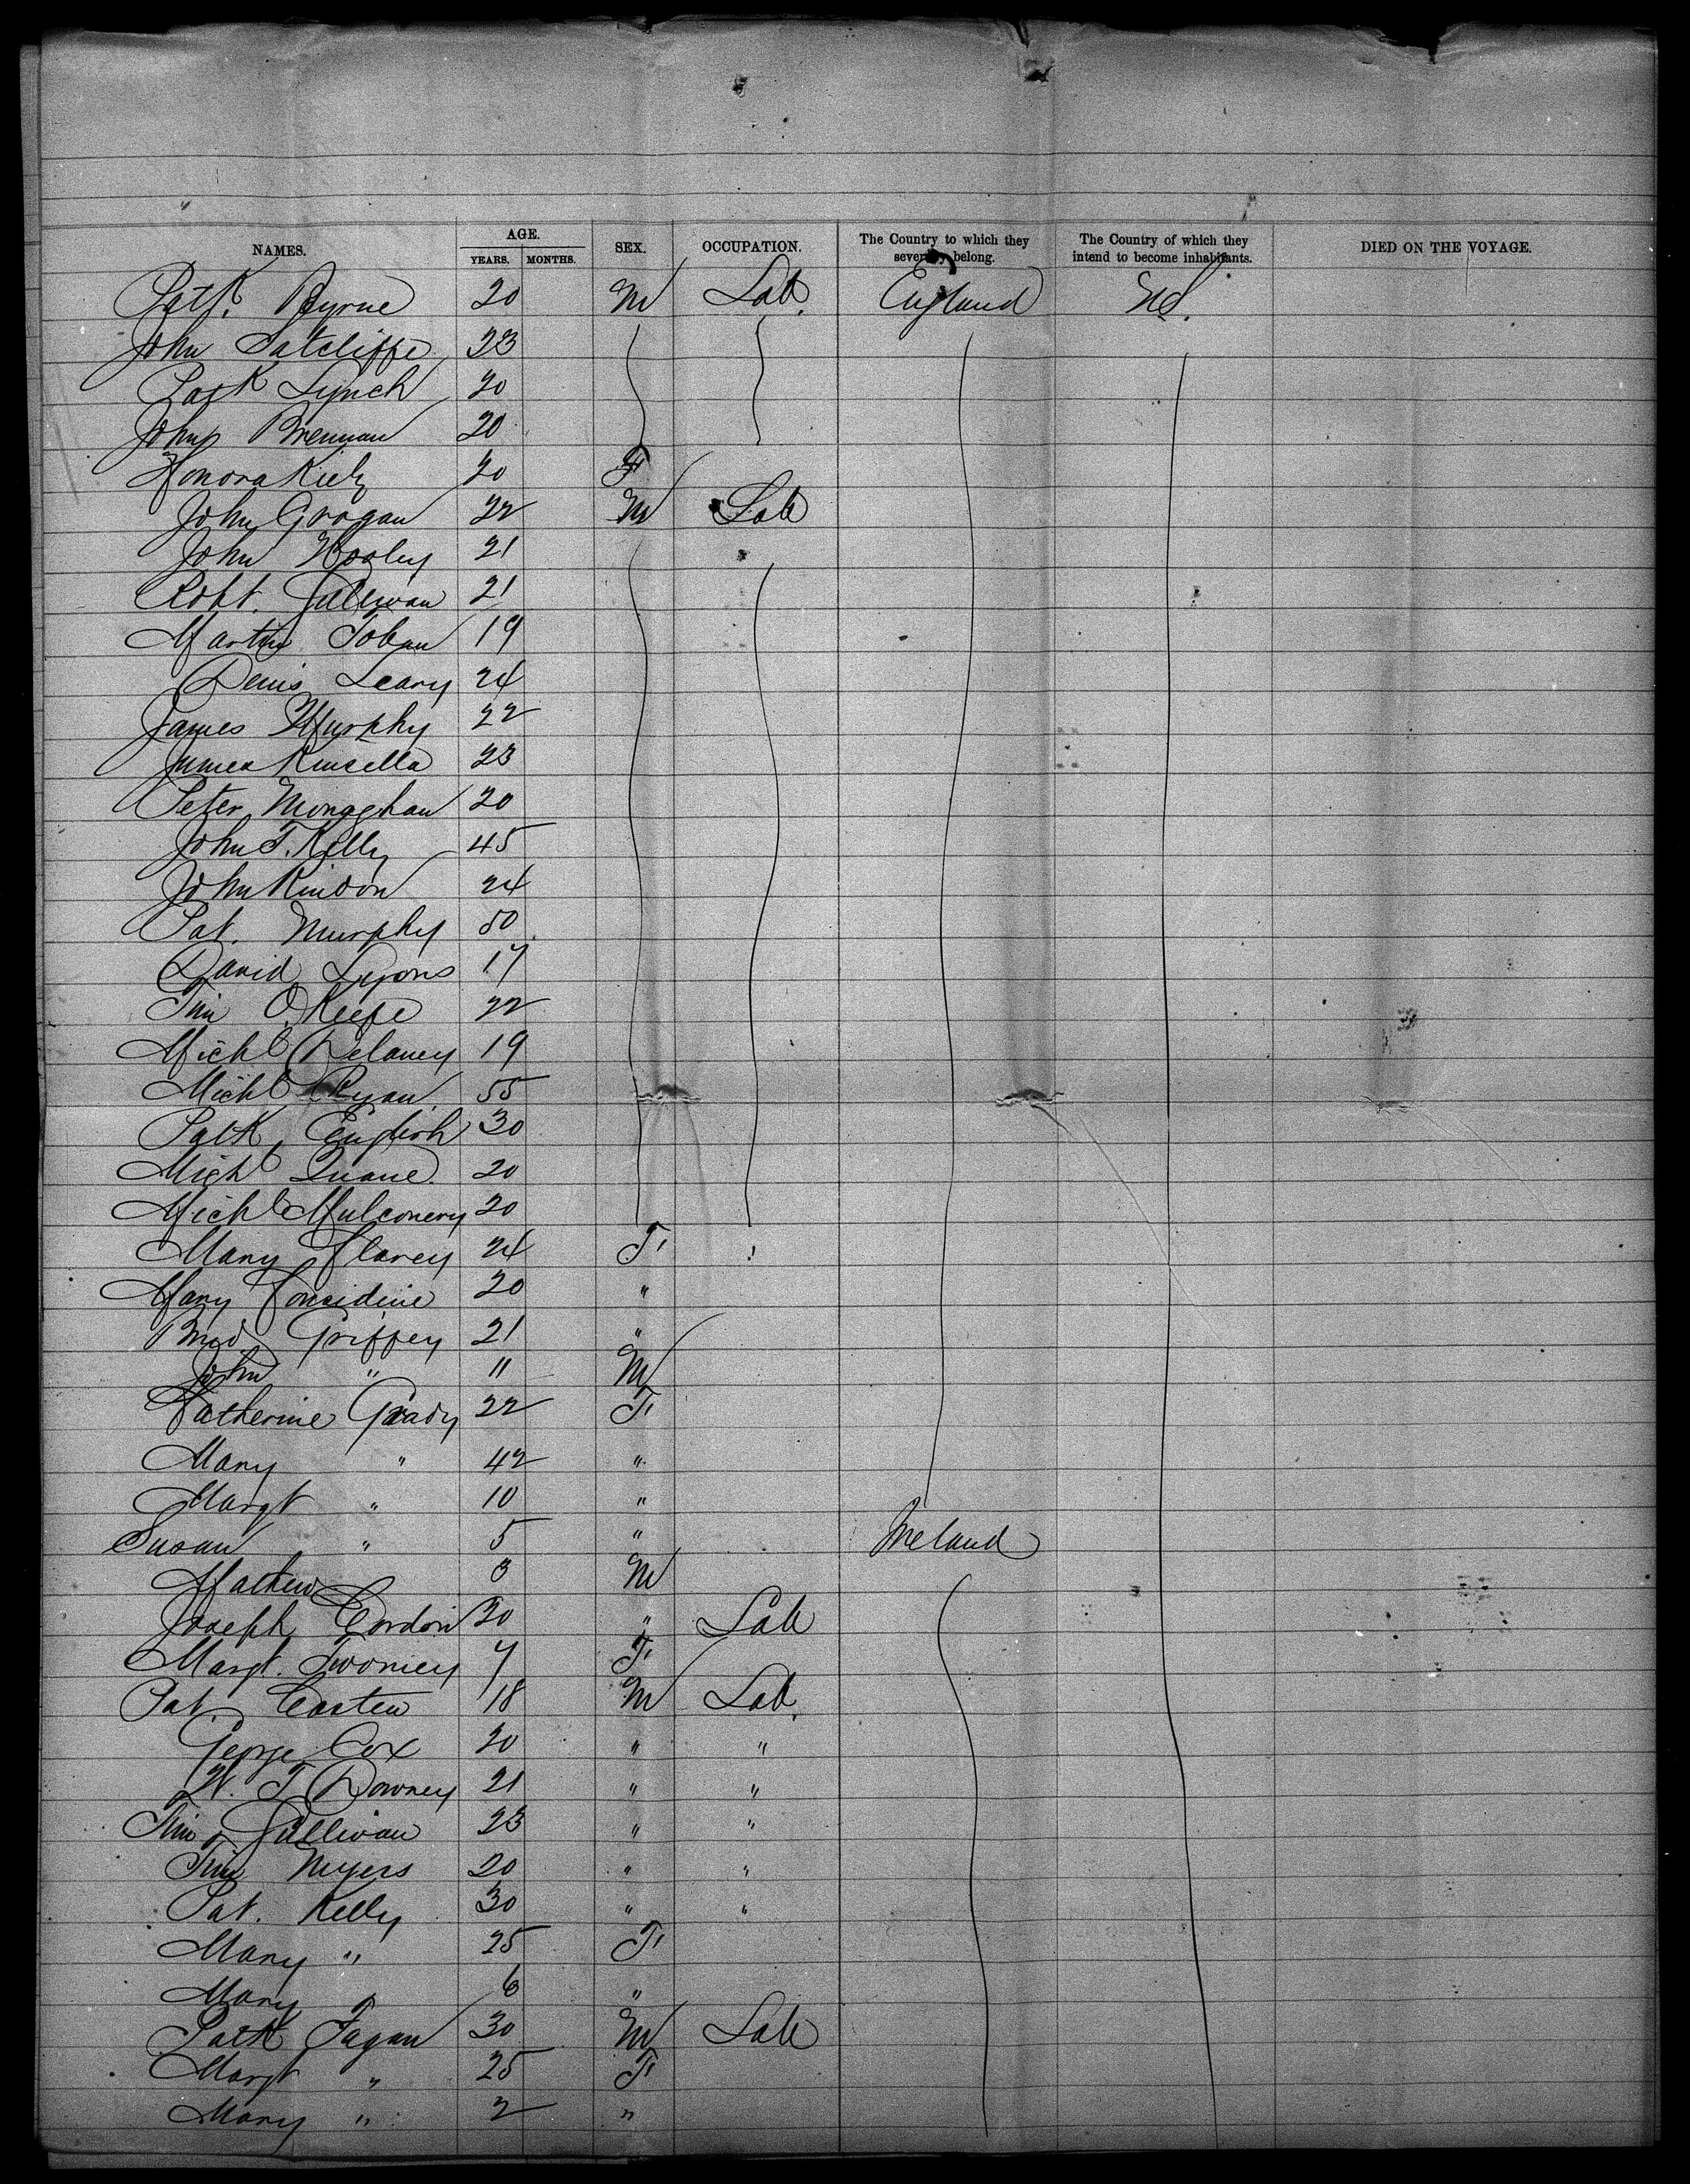 NAMES. AGE. YEARS. MONTHS. SEX. OCCUPATION. The Country to which they severally belong. The Country of which they intend to become inhabitants. DIED ON THE VOYAGE.
Patk. Byrne 20 M Lab. England US.
John Sutcliffe 23
Patk Lynch 20
John Brennan 20
Honora Kiely 20 F
John Grogan 22 M Lab
John Hooley 21
Robt. Sullivan 21
Martin Tobin 19
Denis Leary 24
James Murphy 22
James Kinsella 23
Peter Monaghan 20
John T. Kelly 45
John Rindon 24
Pat. Murphy 50
David Lyons 17
Tim O'Keefe 22
Michl Delaney 19
Michl Ryan 55
Patk English 30
Michl Quane 20
Michl Mulconery 20
Mary Clancy 24 F
Mary Considine 20 "
Brid Griffey 21 "
John " 11 M
Catherine Grady 22 F
Mary " 42 "
Margt " 10 "
Susan " 5 " Ireland
Mathew 3 M
Joseph Cordon 30 " Lab
Margt. Twomey 7 F
Pat. Costen 18 M Lab.
George Cox 20 " "
W. T Downey 21 " "
Tim Sullivan 23 " "
Tim Myers 20 " "
Pat. Kelly 30 " "
Mary " 25 F
Mary " 6 "
Patk Fagan 30 M Lab
Margt " 25 F
Mary " 2 "